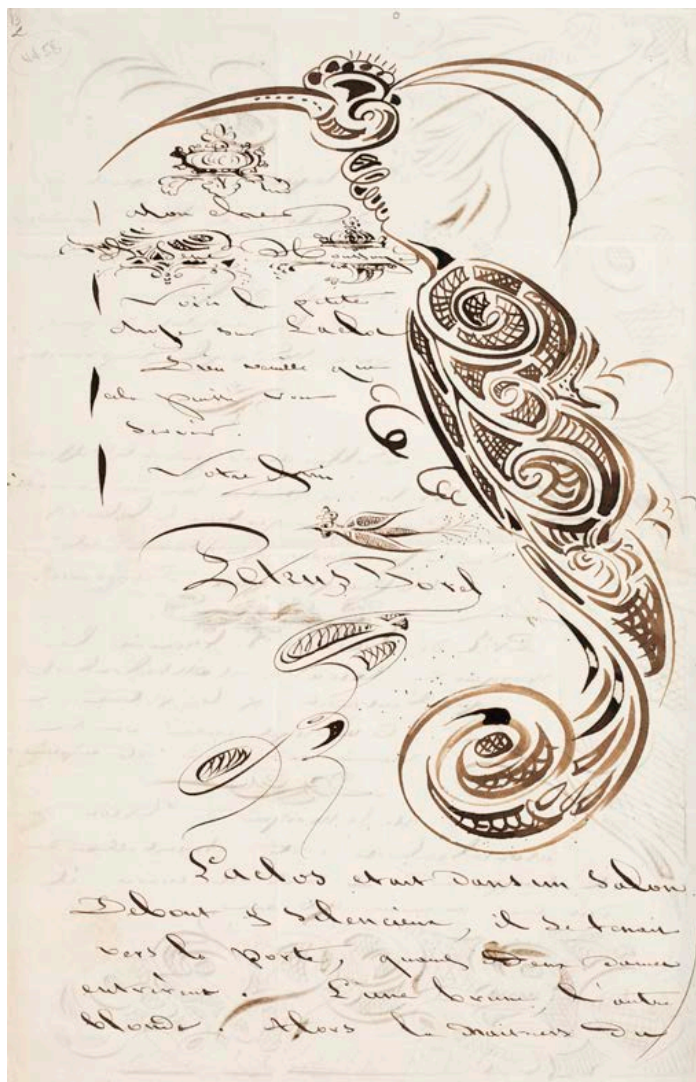 Mon cher
Houssaye
Voici la petite
chose sur Laclos
Dieu veuille que
cela puisse vous
servir.
Votre Ami
Petrus Borel
Laclos etait dans un Salon
Debout & Silencieux, il se tenait
vers la porte, quand Deux Dames
entrèrent. L'une brune, l'autre
blonde. Alors la Maitresse Du